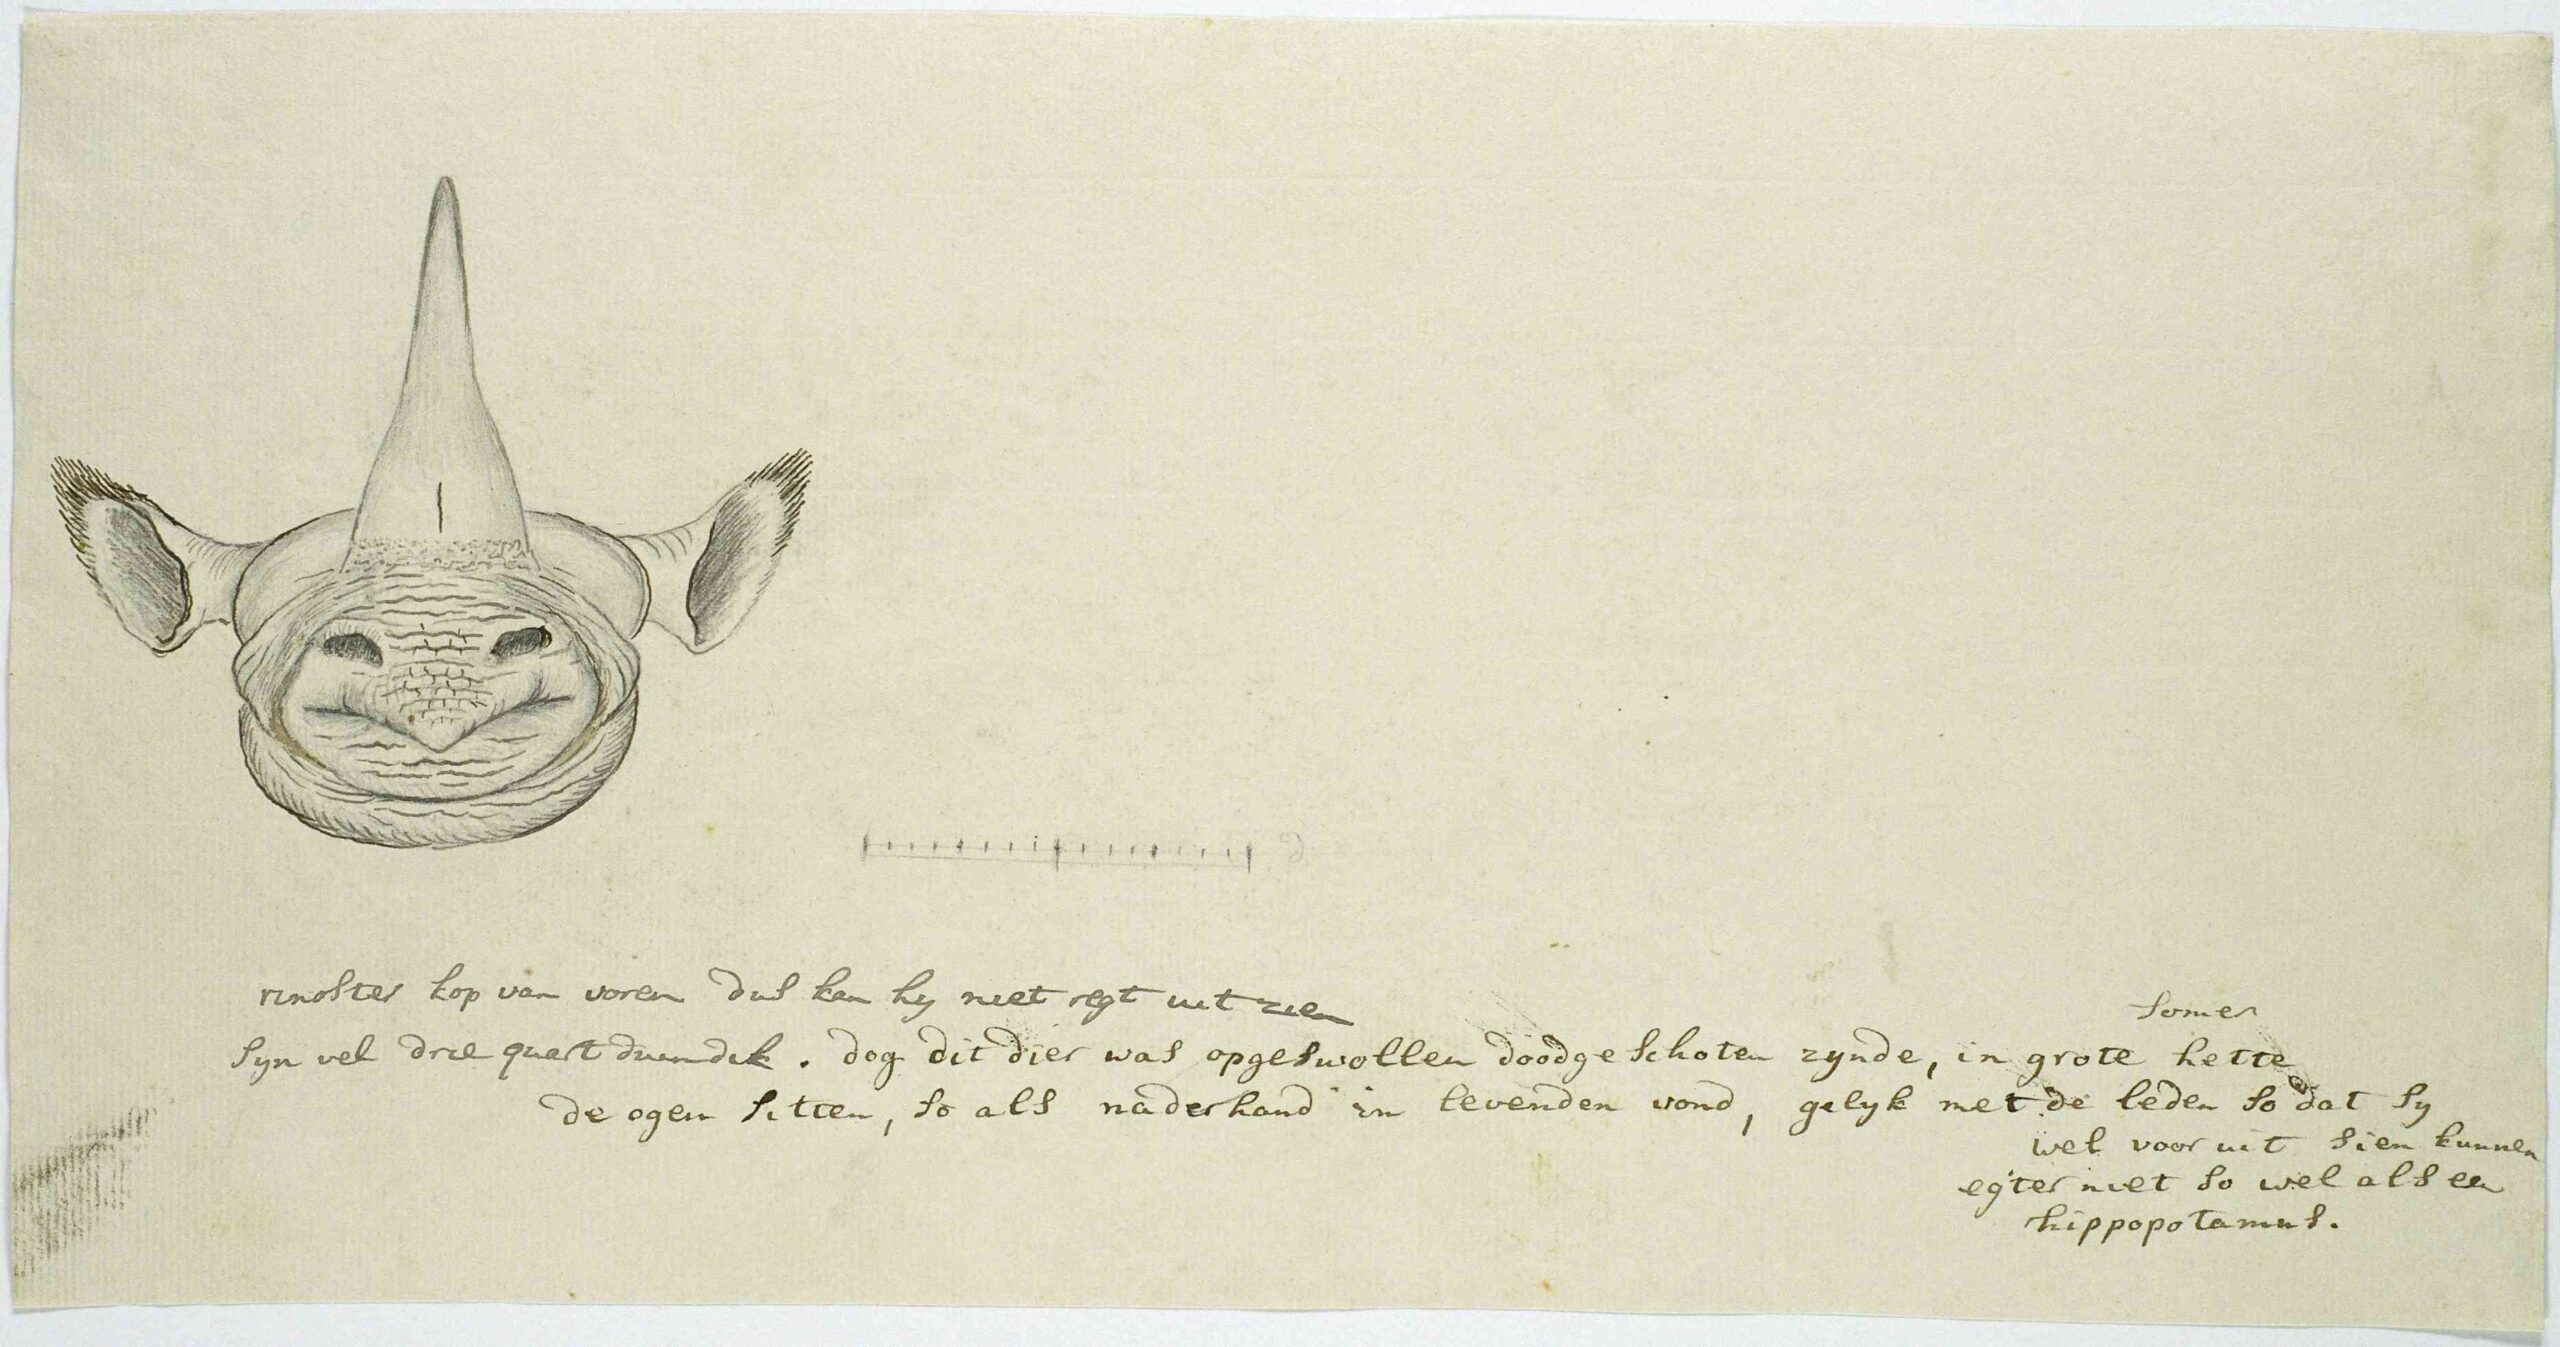 rinoster kop van voren dus kan hy niet regt uit zien
somer
syn vel drie quart duim dik. dog dit dier was opgeswollen doodgeschoten zynde, in grote hette
de ogen sitten, so als naderhand in levenden vond, gelyk met de leden so dat sy
wel voor uit sien kunnen
egter niet so wel als een
hippopotamus.